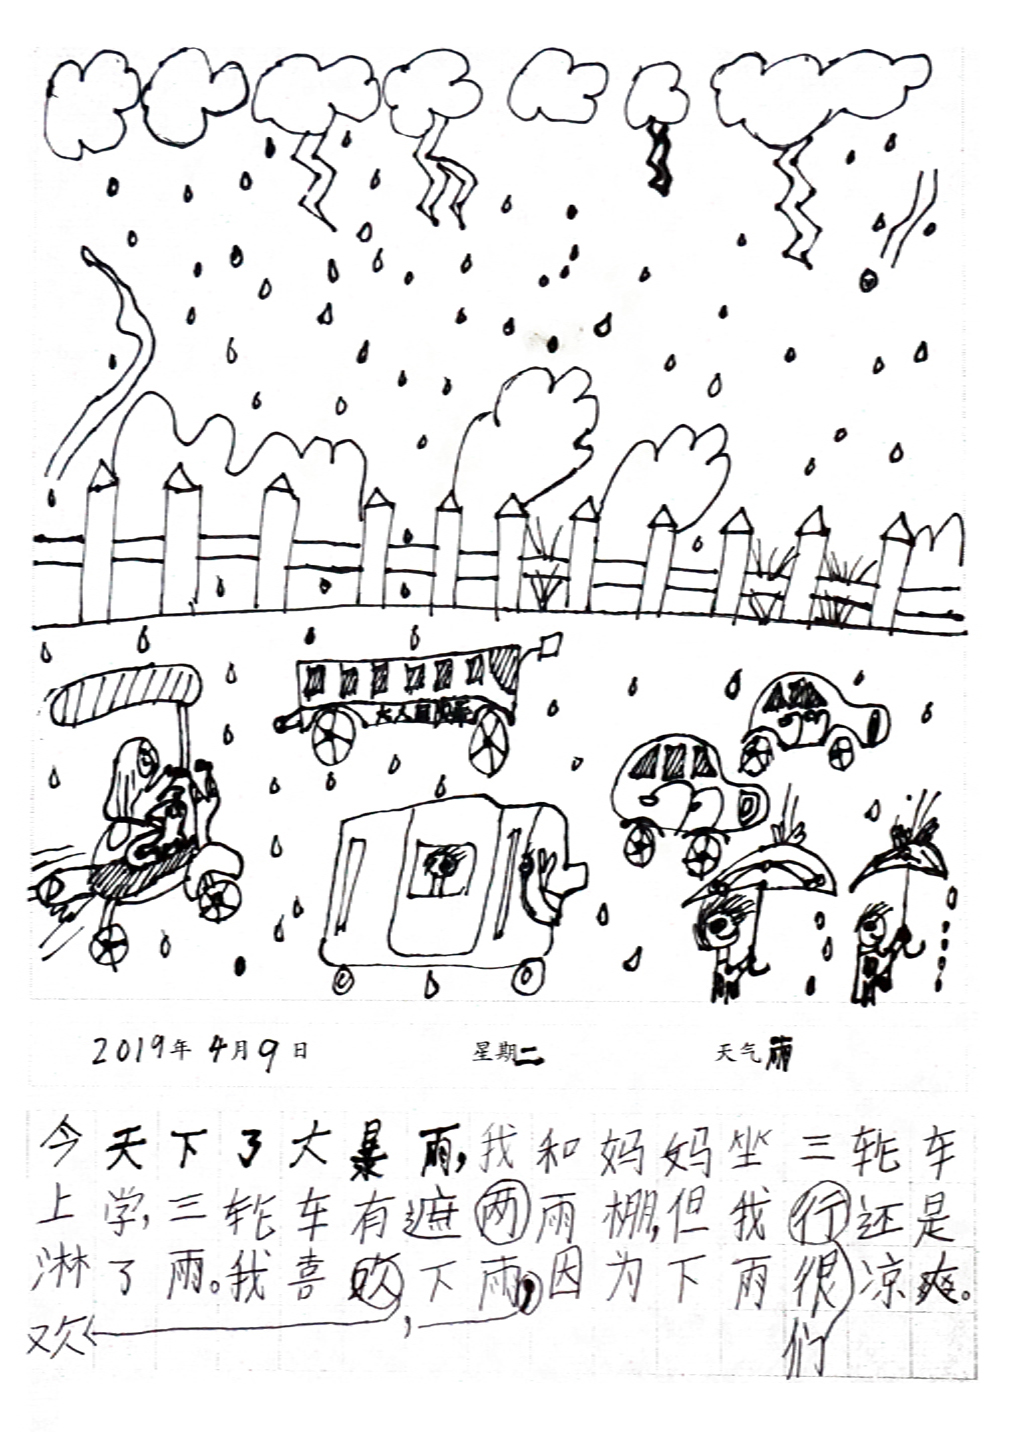 2019年4月9日 星期二 天气雨
今天下了大暴雨,我和妈妈坐三轮车
上学,三轮车有遮两雨棚,但我行还是
淋了雨。我喜欢下雨,因为下雨很凉爽。
欢 , 们